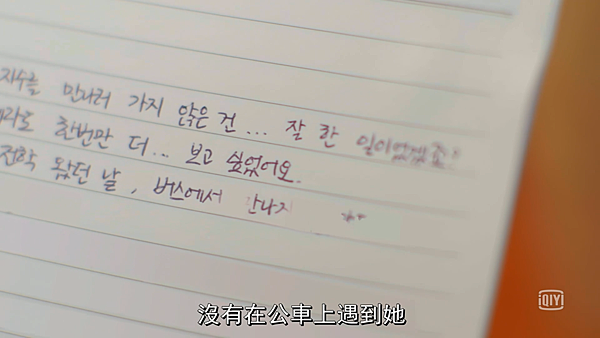 지수를 만나러 가지 않은 건... 잘 한 일이었겠죠?
한번만 더... 보고 싶었어요.
전학 왔던 날, 버스에서 만나지
沒有在公車上遇到她
iQIYI